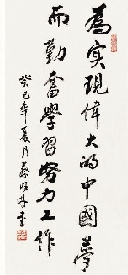 為實現偉大的中國夢
而勤奮學習努力工作
癸巳年夏月